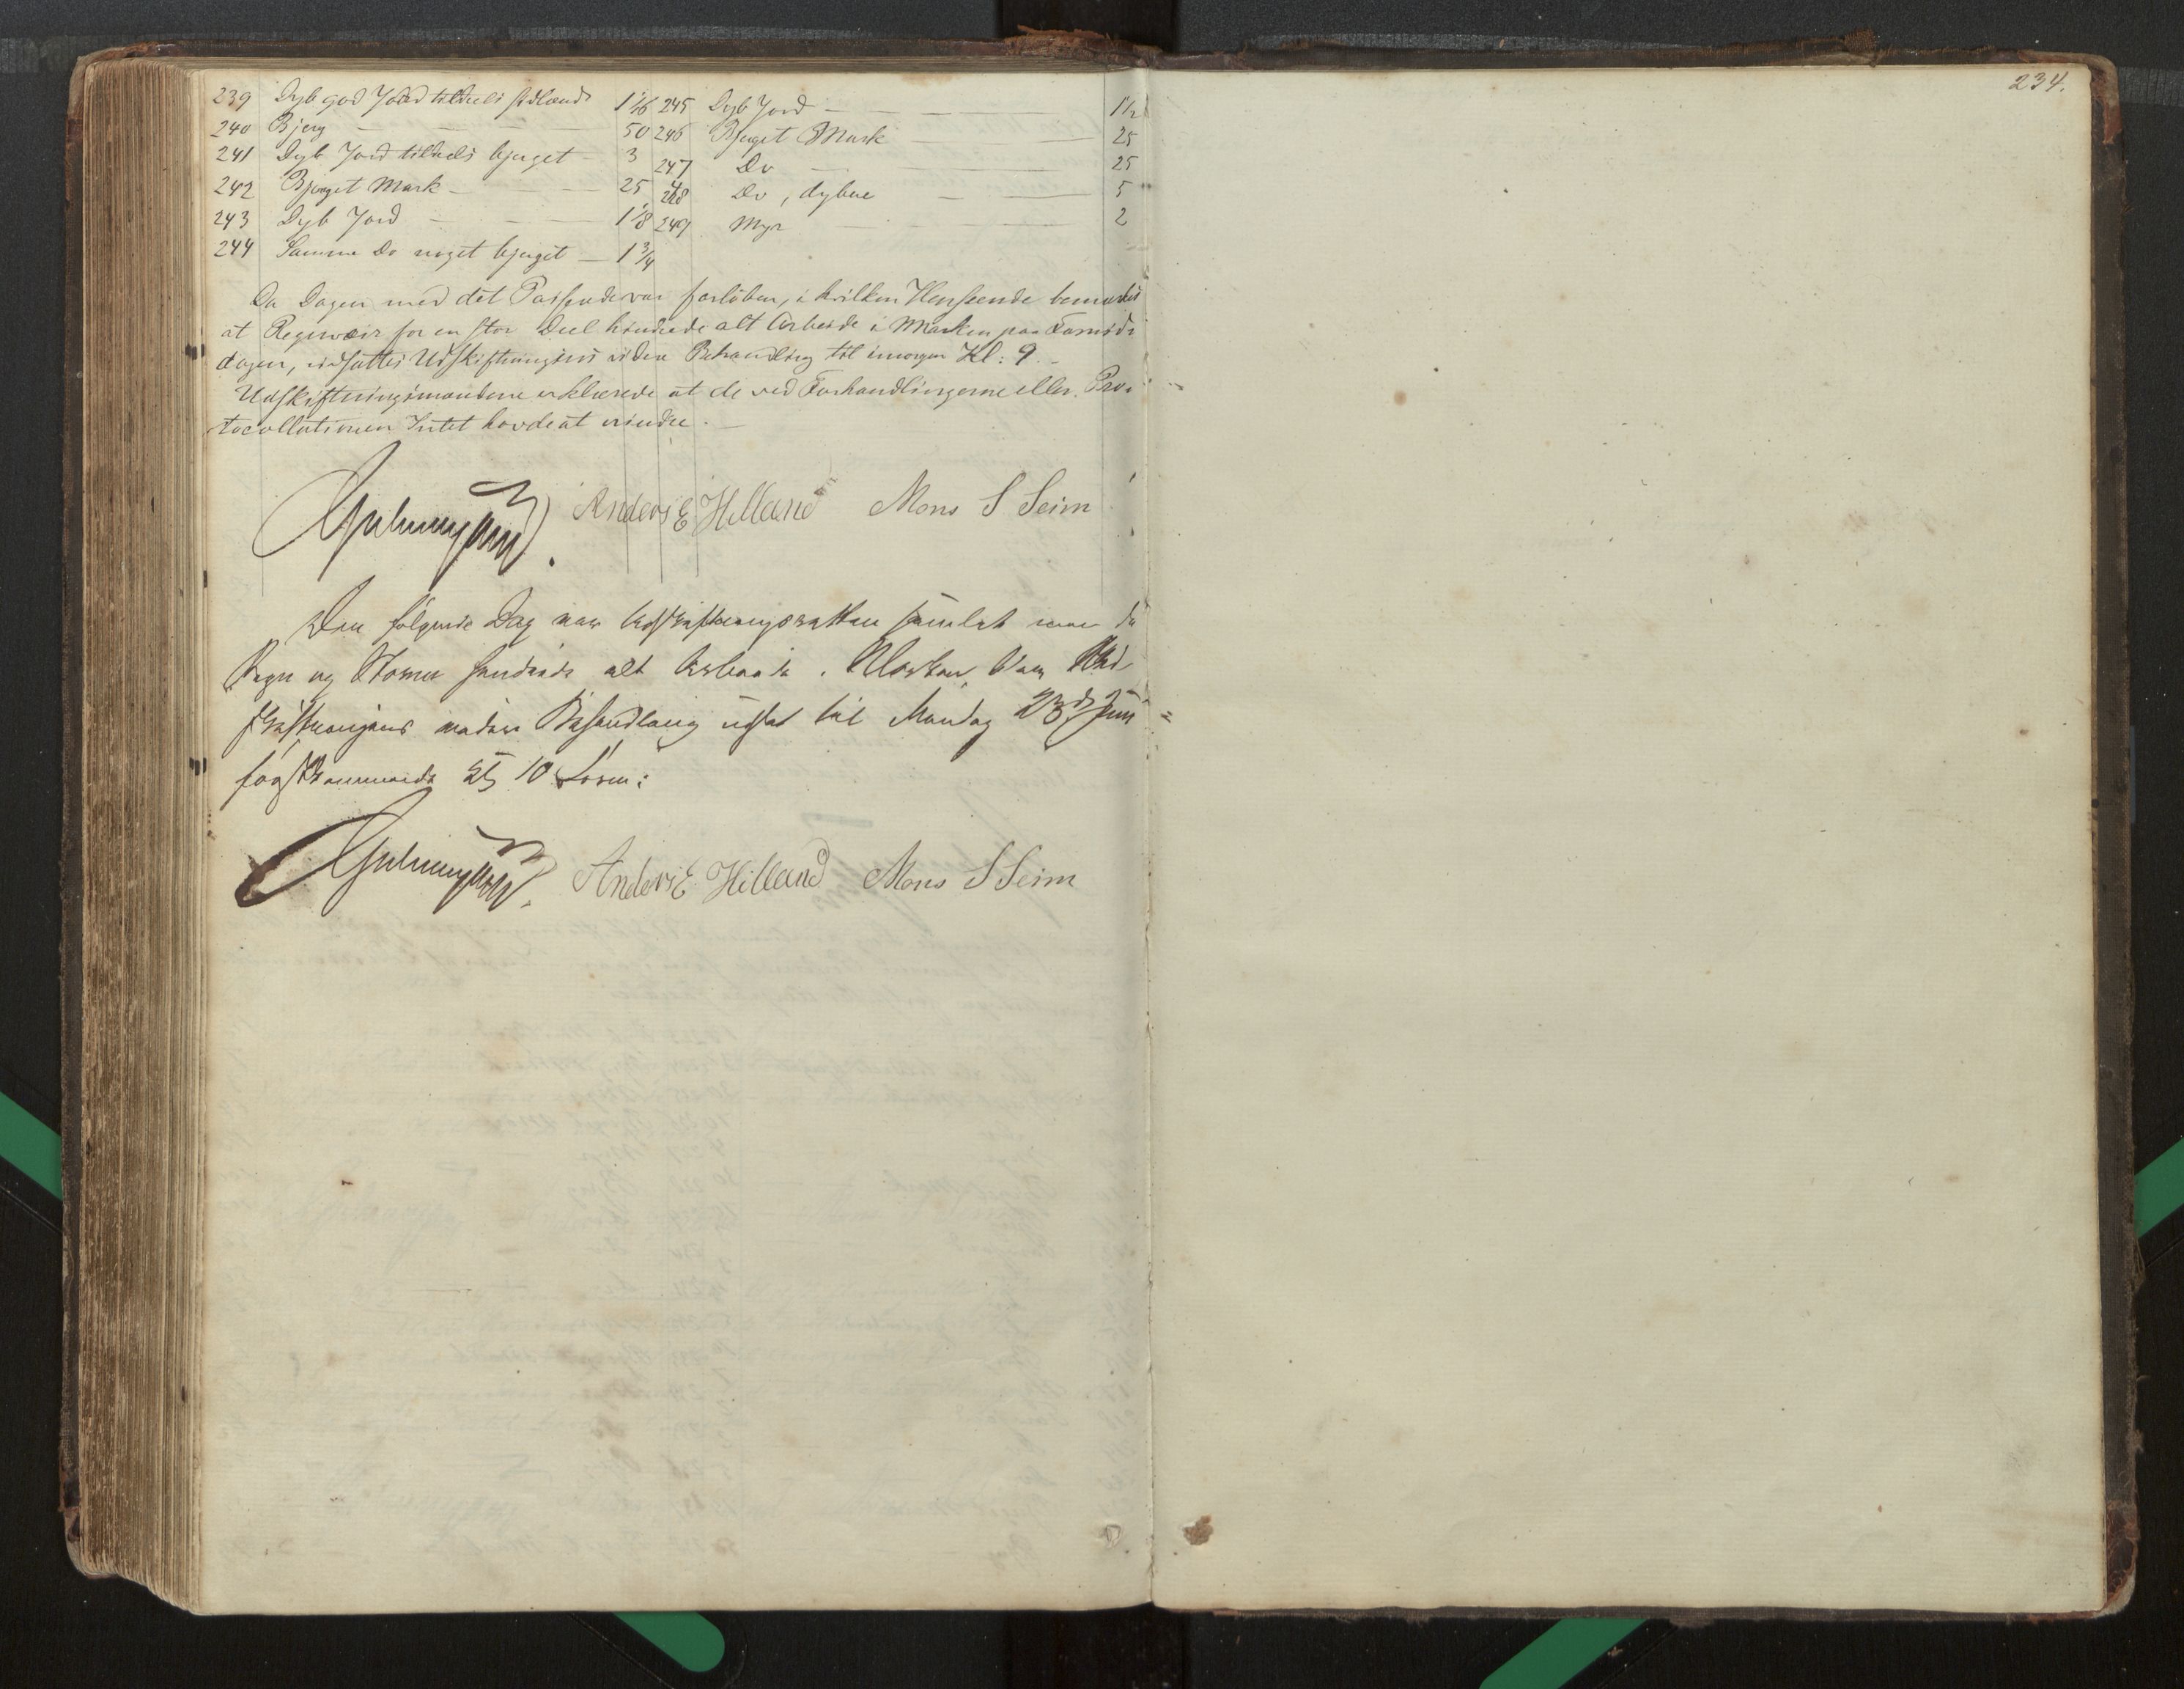 234.
239 Dyb god Jord tildeels sidlændt 1 1/16
240 Bjerg — — — 50
241 Dyb Jord tildeels bjerget — 3
242 Bjerget Mark — — — 25
243 Dyb Jord — — — 1 1/8
244 Samme Do noget bjerget — 1 3/4
245 Dyb Jord — — — 1 1/2
246 Bjerget Mark — — 25
247 Do — — 25
248 Do, dybere — — 5
249 Myr — — — 2
Da Dagen med det Passerede var forløben, i hvilken Henseende bemærkes
at Regnveir for en stor Deel hindrede alt Arbeide i Marken paa Formid-
dagen, udsattes Udskiftningens videre Behandling til imorgen Kl: 9. —
Udskiftningsmændene erklærede at de ved Forhandlingerne eller Pro-
tocollationen Intet havde at erindre. —
Anders E Hilland Mons S Seim
Den følgende Dag var Udskiftningsretten samlet men da
Regn og Storm hindrede alt Arbeide i Marken, blev Ud-
skiftningens videre Behandling udsat til Mandag 23de Juni
førstkommende Kl 10 Form:
Anders E Hilland Mons S Seim